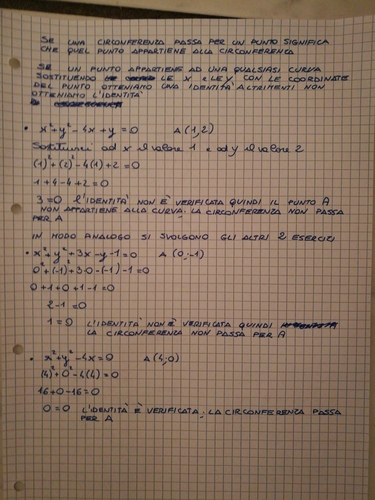 SE UNA CIRCONFERENZA PASSA PER UN PUNTO SIGNIFICA
CHE QUEL PUNTO APPARTIENE ALLA CIRCONFERENZA
SE UN PUNTO APPARTIENE AD UNA QUALSIASI CURVA
SOSTITUENDO LE X E LE Y, CON LE COORDINATE
DEL PUNTO OTTENIAMO UNA IDENTITÀ ALTRIMENTI NON
OTTENIAMO L'IDENTITÀ
• x²+y²-4x+y=0 A(1,2)
Sostituisci ad x il valore 1 e ad y il valore 2
(1)²+(2)²-4(1)+2=0
1+4-4+2=0
3=0 L'IDENTITÀ NON È VERIFICATA QUINDI IL PUNTO A
NON APPARTIENE ALLA CURVA: LA CIRCONFERENZA NON PASSA
PER A
IN MODO ANALOGO SI SVOLGONO GLI ALTRI 2 ESERCIZI
• x²+y²+3x-y-1=0 A(0,-1)
0²+(-1)²+3·0-(-1)-1=0
0+1+0+1-1=0
2-1=0
1=0 L'IDENTITÀ NON È VERIFICATA QUINDI
LA CIRCONFERENZA NON PASSA PER A
• x²+y²-4x=0 A(4,0)
(4)²+0²-4(4)=0
16+0-16=0
0=0 L'IDENTITÀ È VERIFICATA: LA CIRCONFERENZA PASSA
PER A